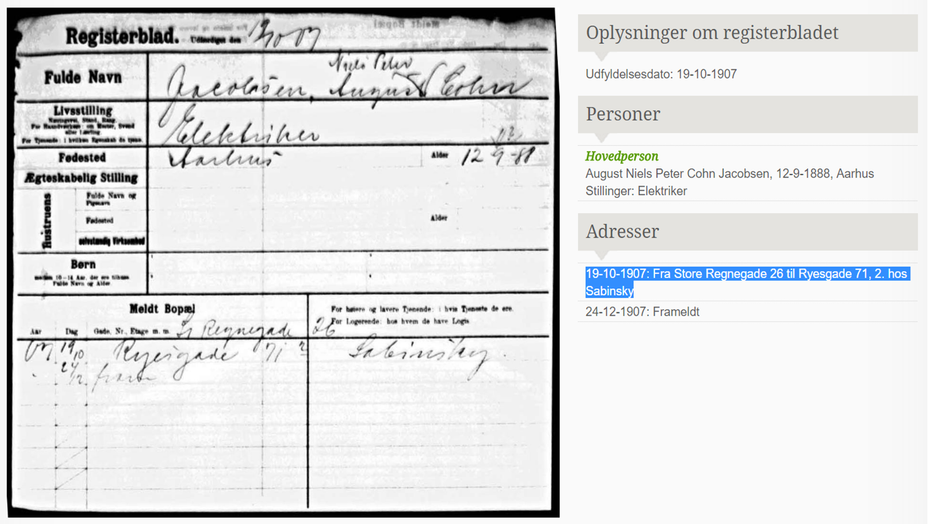 Registerblad. Udfærdiget den 19/10 07
Fulde Navn
Niels Peter
Jacobsen, August Cohn
Livsstilling
Elektriker
Fødested
Aarhus
Alder 12-9-88
Ægteskabelig Stilling
Hustruens
Fulde Navn og
Pigenavn
Fødested
Alder
selvstændig Virksomhed
Børn
Fulde Navn og Alder
Meldt Bopæl
For højere og lavere Tjenende: i hvis Tjeneste de ere.
For Logerende: hos hvem de have Logis
Aar Dag Gade, Nr., Etage m. m. St Regnegade 26
07 19/10 Ryesgade 71 2 Sabinsky.
24/12 fram
Oplysninger om registerbladet
Udfyldelsesdato: 19-10-1907
Personer
Hovedperson
August Niels Peter Cohn Jacobsen, 12-9-1888, Aarhus
Stillinger: Elektriker
Adresser
19-10-1907: Fra Store Regnegade 26 til Ryesgade 71, 2. hos
Sabinsky
24-12-1907: Frameldt